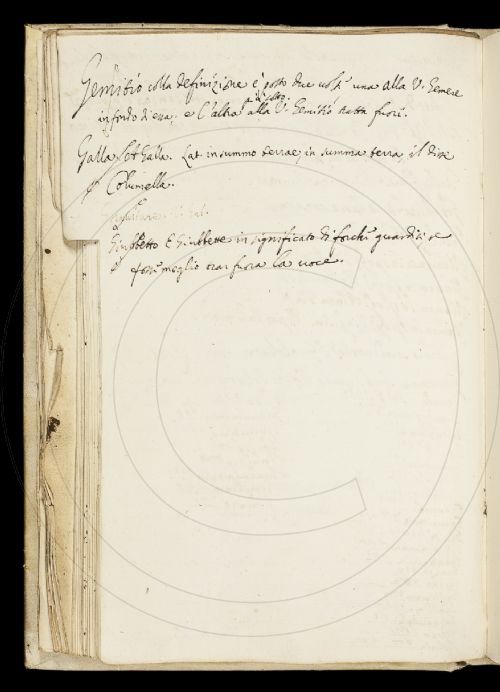 Gemitio colla definizione è posto due volte una alla V. Gemere
in fondo di essa, e l'altra alla V. Gemitio tratta fuori.
Galla. Lat. in summo terrae, in summa terra, il dire
Columella.
Giubbetto e Giubbette in significato di forche guardisi se
fosse meglio trar fuora la voce.